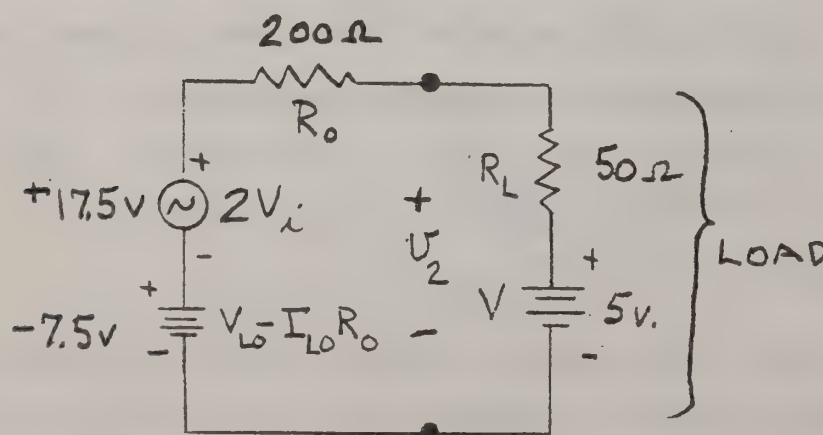 200Ω
R₀
+17.5v
+
2Vᵢ
-
+
-7.5v
V_LO - I_LO R₀
-
+
υ₂
-
R_L
50Ω
V
+
5v.
-
LOAD